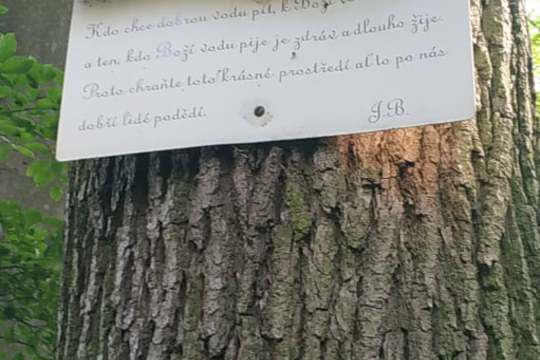 Kdo chce dobrou vodu pít, k Boží
a ten, kdo Boží vodu pije je zdráv a dlouho žije.
Proto chraňte toto krásné prostředí ať to po nás
dobří lidé podědí.
J.B.